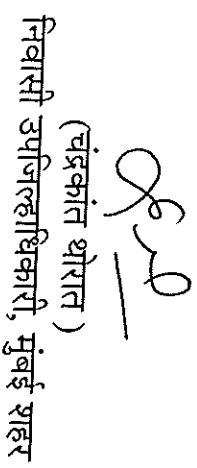 (चंद्रकांत थोरात)
निवासी उपजिल्हाधिकारी, मुंबई शहर